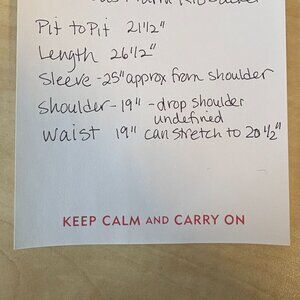 Pit to Pit 21 1/2"
Length 26 1/2"
Sleeve - 25" approx from shoulder
Shoulder - 19" - drop shoulder
undefined
Waist 19" can stretch to 20 1/2"
KEEP CALM AND CARRY ON